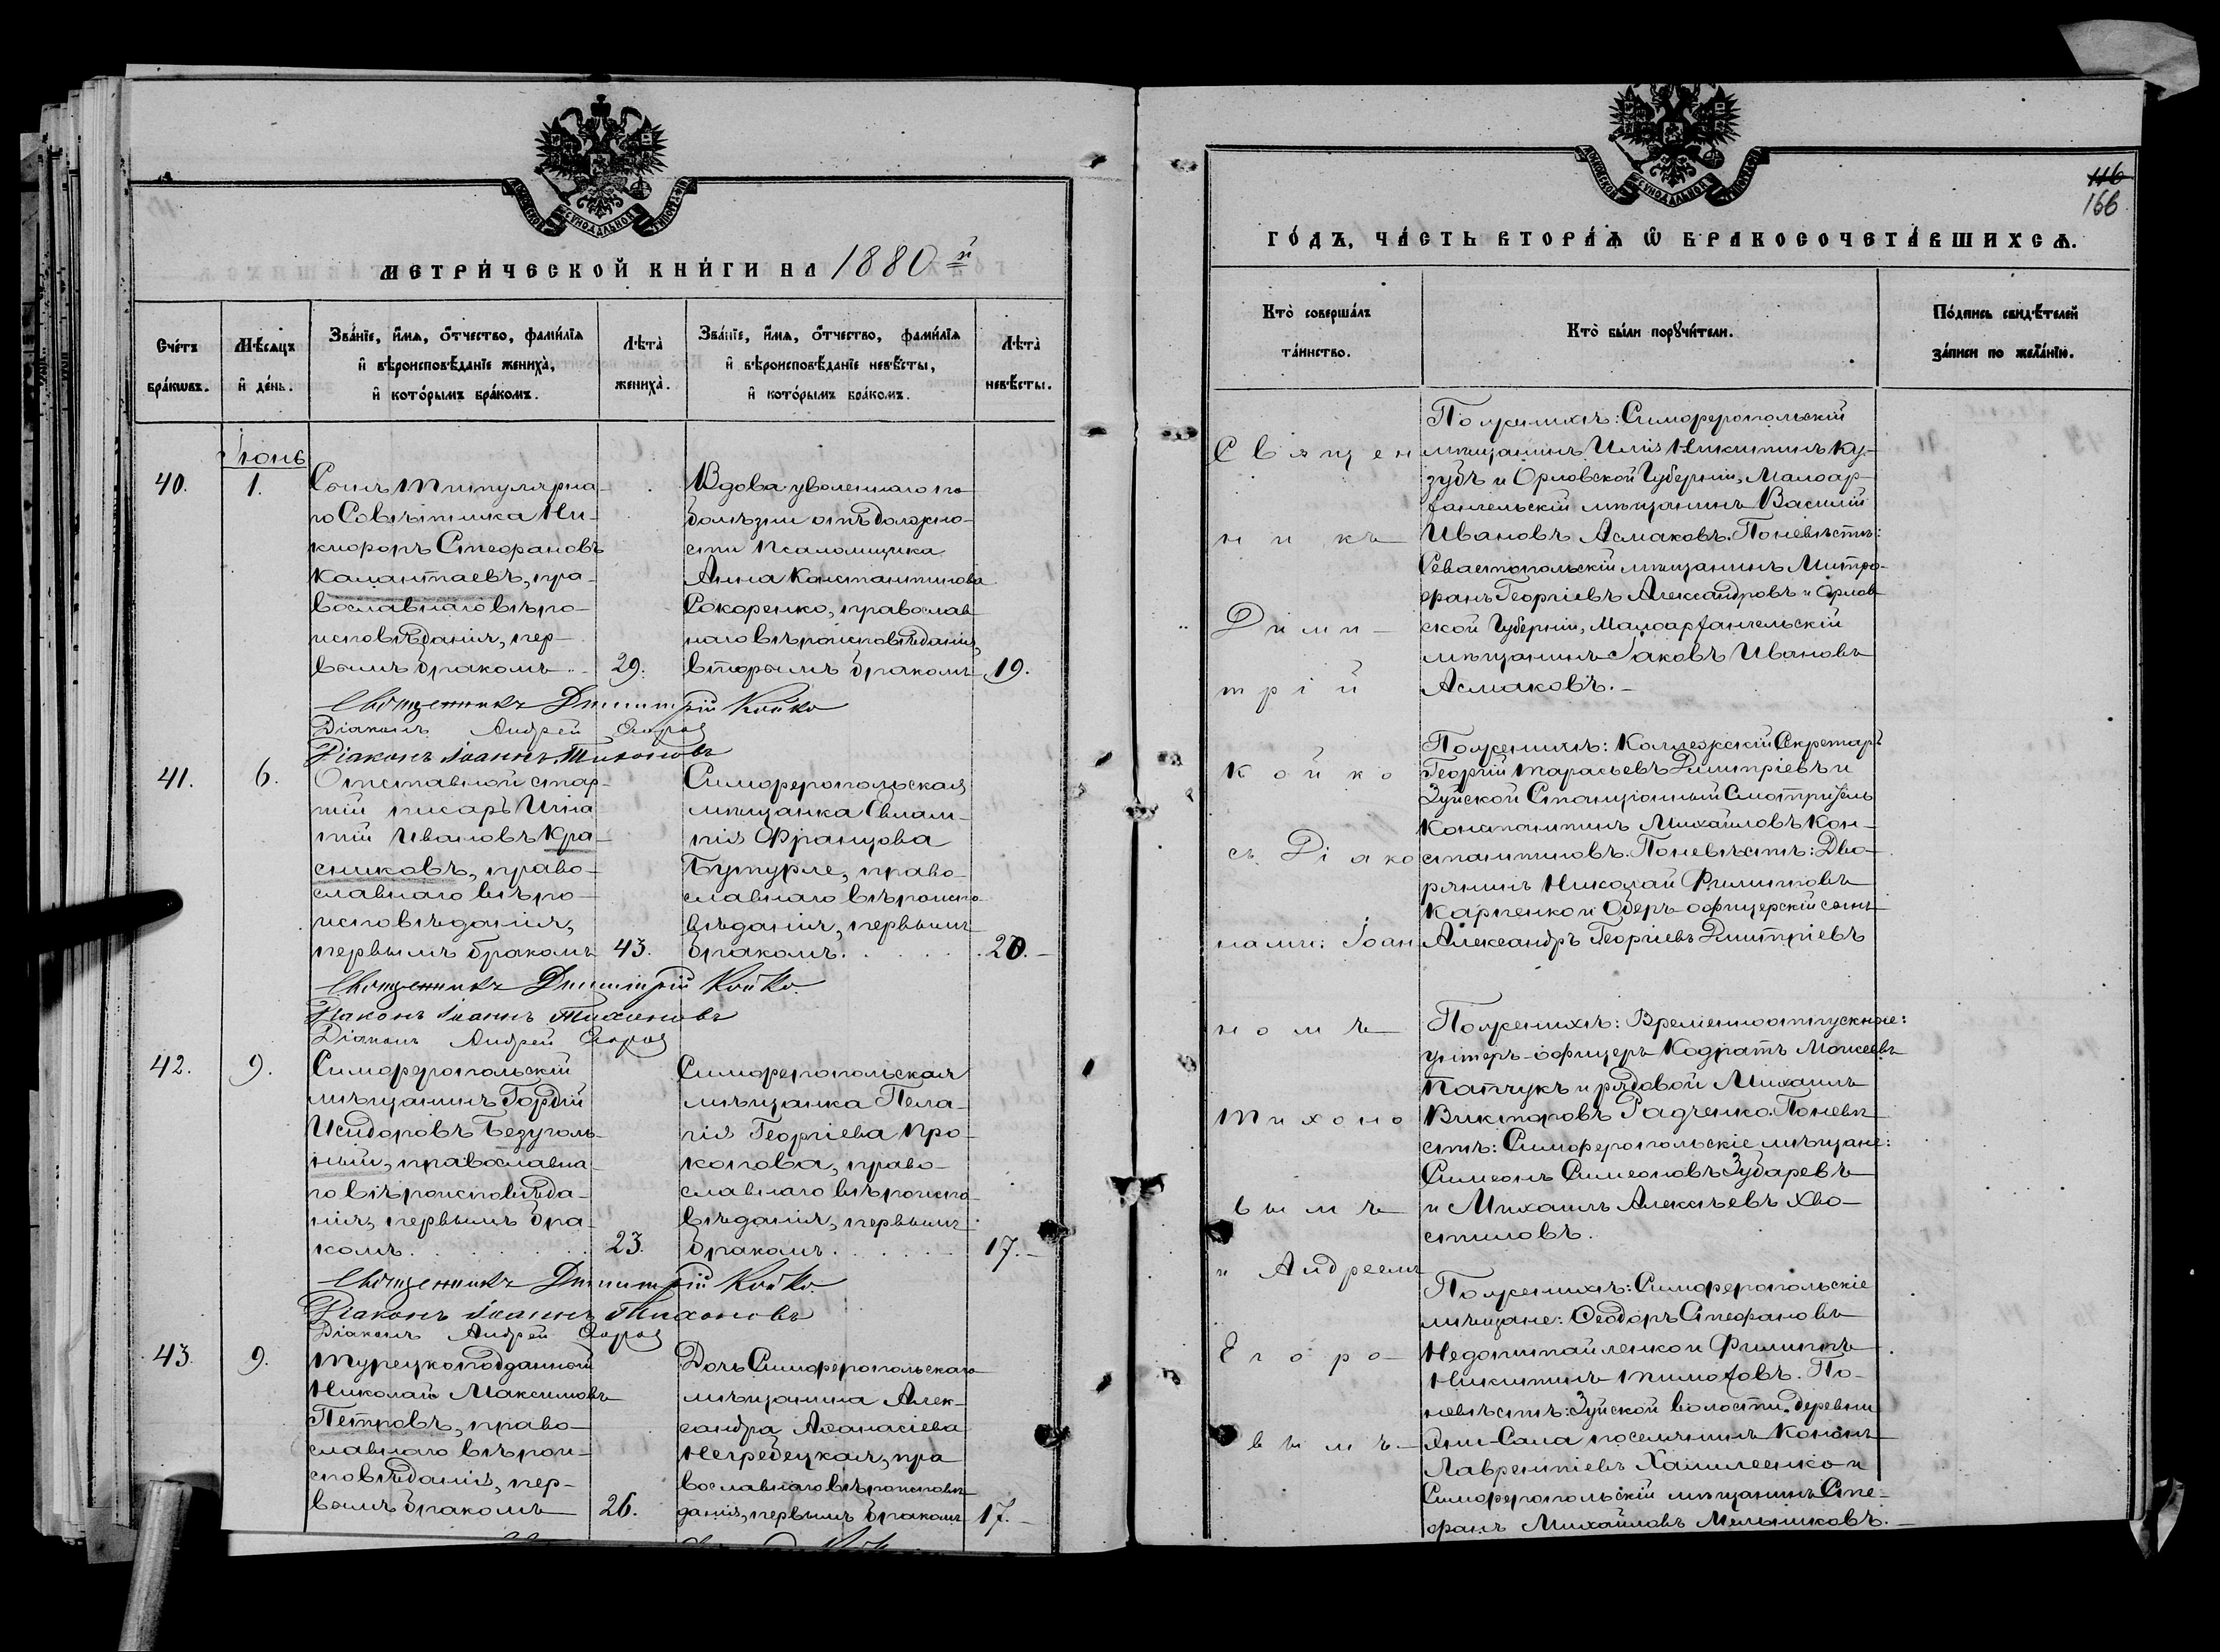 МОСКОВСКОЙ СѴНОДАЛЬНОЙ ТИПОГРАФІИ
МЕТРИ́ЧЕСКОЙ КНИ́ГИ НА 1880й
Сче́тъ бра́кωвъ.
Мѣ́сяцъ и҆ де́нь.
Зва́нїе, и҆́мѧ, ѻ҆́тчество, фами́лїѧ
и҆ вѣроисповѣ́данїе жениха̀,
и҆ кото́рымъ бра́комъ.
Лѣ́та̀ жениха̀.
Зва́нїе, и҆́мѧ, ѻ҆́тчество, фами́лїѧ
и҆ вѣроисповѣ́данїе невѣ́сты,
и҆ кото́рымъ бра́комъ.
Лѣ́та̀ невѣ́сты.
Іюнь
40.
1.
Сынъ Титулярна-
го Совѣтника Ни-
кифоръ Стефановъ
Калантаевъ, пра-
вославнаго вѣро-
исповѣданія, пер-
вымъ бракомъ
29.
Вдова уволеннаго по
болѣзни отъ должно-
сти Псаломщика
Анна Константинова
Сокоренко, православ-
наго вѣроисповѣданія,
вторымъ бракомъ
19.
Священникъ Димитрій Койко
Діаконъ Андрей Егоров
Діаконъ Іоаннъ Тихоновъ
41.
6.
Отставной стар-
шій писарь Игна-
тій Ивановъ Кра-
сниковъ, право-
славнаго вѣро-
исповѣданія,
первымъ бракомъ
43.
Симферопольская
мѣщанка Евлам-
пія Францова
Бутурле, право-
славнаго вѣроиспо-
вѣданія, первымъ
бракомъ.
20.
Священникъ Димитрій Койко.
Діаконъ Іоаннъ Тихоновъ
Діаконъ Андрей Егоров
42.
9.
Симферопольскій
мѣщанинъ Гордій
Исидоровъ Безуголь-
ный, православна-
го вѣроисповѣда-
нія, первымъ бра-
комъ.
23.
Симферопольская
мѣщанка Пела-
гія Георгіева Про-
копова, право-
славнаго вѣроиспо-
вѣданія, первымъ
бракомъ.
17.
Священникъ Димитрій Койко.
Діаконъ Іоаннъ Тихоновъ
Діаконъ Андрей Егоров
43.
9.
Турецкоподданной
Николай Максимовъ
Петровъ, право-
славнаго вѣрои-
сповѣданія, пер-
вымъ бракомъ
26.
Дочь Симферопольскаго
мѣщанина Алек-
сандра Аѳанасіева
Негребецкая, пра
вославнаго вѣроисповѣ
данія, первымъ бракомъ
17.
МОСКОВСКОЙ СѴНОДАЛЬНОЙ ТИПОГРАФІИ
116
166
ГО́ДЪ, ЧА́СТЬ ВТОРА́Ѧ Ѽ БРАКОСОЧЕТА́ВШИХСѦ.
Кто̀ соверша́лъ та́инство.
Кто̀ бы́ли порꙋчи́тели.
По́дпись свидѣ́телей за́писи по жела́нїю.
Священ
никъ
Дими-
трій
Койко
съ Діако
нами: Іоан-
номъ
Тихоно
вымъ
и Андреемъ
Егоро-
вымъ.
По женихѣ: Симферопольскій
мѣщанинъ Илія Никитинъ Ку-
зубъ и Орловской Губерніи, Малоар-
хангельскій мѣщанинъ Василій
Ивановъ Асмаковъ. По невѣстѣ:
Севастопольскій мѣщанинъ Митро-
фанъ Георгіевъ Александровъ и Орлов-
ской Губерніи, Малоархангельскій
мѣщанинъ Іаковъ Ивановъ
Асмаковъ.
По женихѣ: Коллежскій Секретарь
Георгій Тарасьевъ Димитріевъ и
Зуйской Станціонный Смотритель
Константинъ Михаиловъ Кон-
стантиновъ. По невѣстѣ: Дво-
рянинъ Николай Филипповъ
Карпенко и Оберъ-офицерскій сынъ
Александръ Георгіевъ Димитріевъ
По женихѣ: Временноотпускные:
унтеръ-офицеръ Кодратъ Моисеевъ
Патчукъ и рядовой Михаилъ
Викторовъ Радченко. По невѣ
стѣ: Симферопольскіе мѣщане:
Симеонъ Симеоновъ Зубаревъ
и Михаилъ Алексѣевъ Хво-
стиловъ.
По женихѣ: Симферопольскіе
мѣщане: Ѳеодоръ Стефановъ
Недопитайленко и Филиппъ
Никитинъ Тимоѳовъ. По-
невѣстѣ: Зуйской волости, деревни
Яни-Сала поселянинъ Кононъ
Лаврентіевъ Хамиленко и
Симферопольскій мѣщанинъ Сте-
фанъ Михайловъ Мельниковъ.